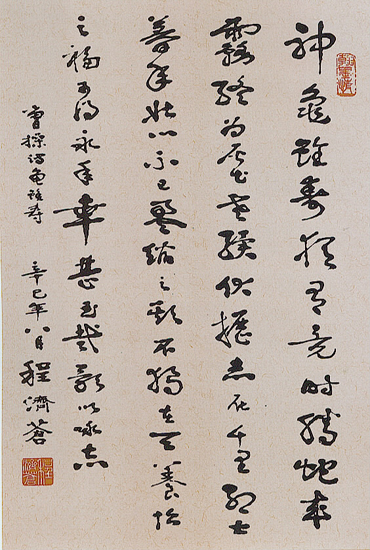 神龜雖壽猶有竟時騰蛇乘
霧終為灰土老驥伏櫪志在千里烈士
暮年壯心不已盈縮之期不獨在天養怡
之福可得永年幸甚至哉歌以詠志
曹操詩龜雖壽 辛巳年八月程濟蒼